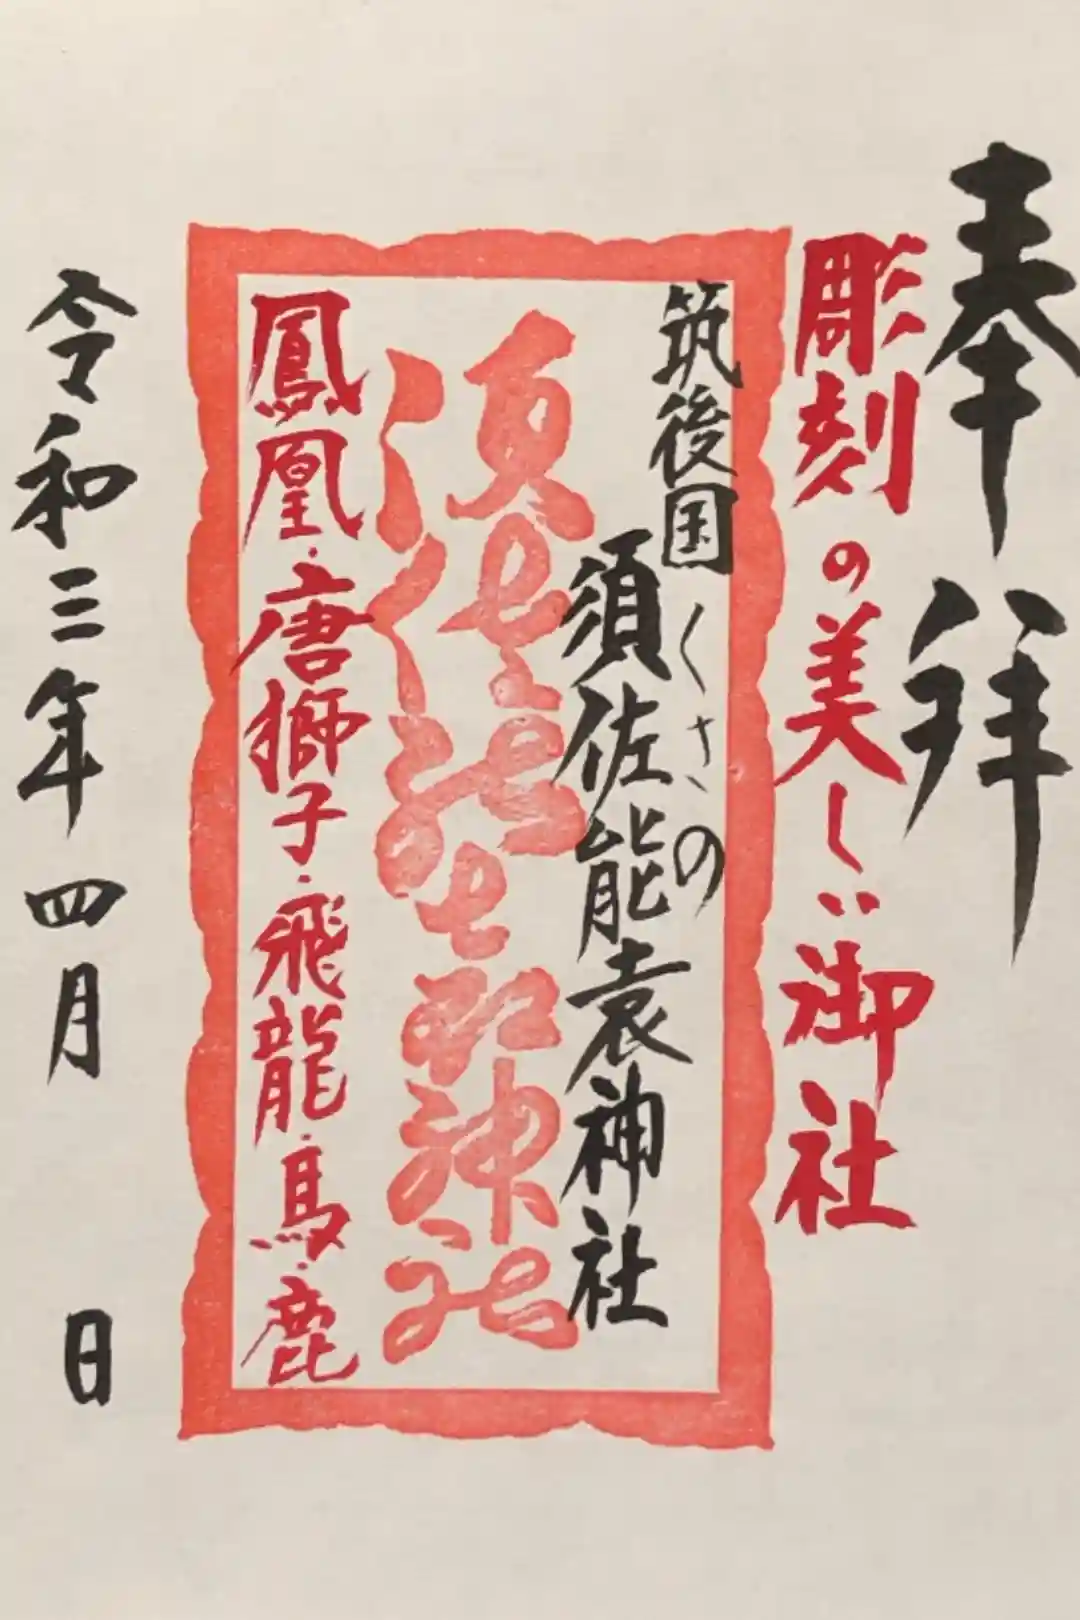 奉拝
彫刻の美しい御社
筑後国くさの
須佐能袁神社
須佐能袁神社
鳳凰・唐獅子・飛龍・馬・鹿
令和三年四月 日